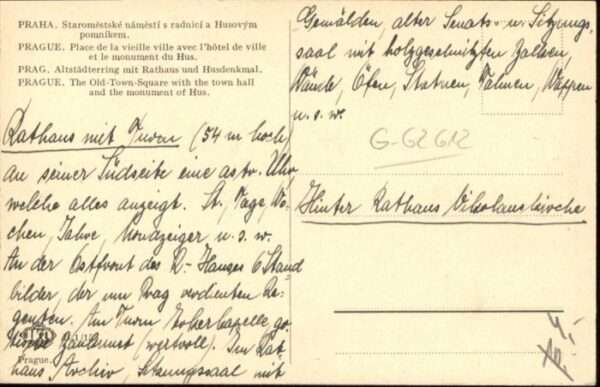 PRAHA. Staroměstské náměstí s radnicí a Husovým
pomníkem.
PRAGUE. Place de la vieille ville avec l'hôtel de ville
et le monument du Hus.
PRAG. Altstädterring mit Rathaus und Husdenkmal.
PRAGUE. The Old-Town-Square with the town hall
and the monument of Hus.
Rathaus mit Turm (54 m hoch)
an seiner Südseite eine astr. Uhr
welche alles anzeigt. St., Tage, Wo-
chen, Jahre, Mondzeiger u. s. w.
An der Ostfront des R.-Hauses 6 Stand
bilder, der um Prag verdienten Re-
genten. Am Turm Erkerkapelle go-
tische (wertvoll). Im Rat-
haus, Archiv, Sitzungssaal mit
Prague.
Gemälden, alter Senats- u. Sitzungs-
saal mit holzgeschnitzten Balken,
Wände, Öfen, Statuen, Fahnen, Wappen
u. s. w.
G-62612
Hinter Rathaus Nikolauskirche